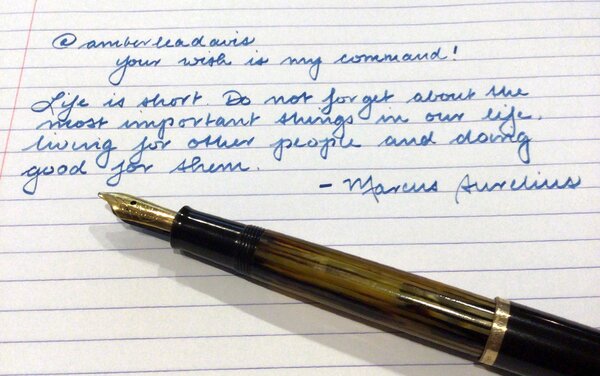 @amberleadavis
your wish is my command!
Life is short. Do not forget about the
most important things in our life,
living for other people and doing
good for them.
- Marcus Aurelius